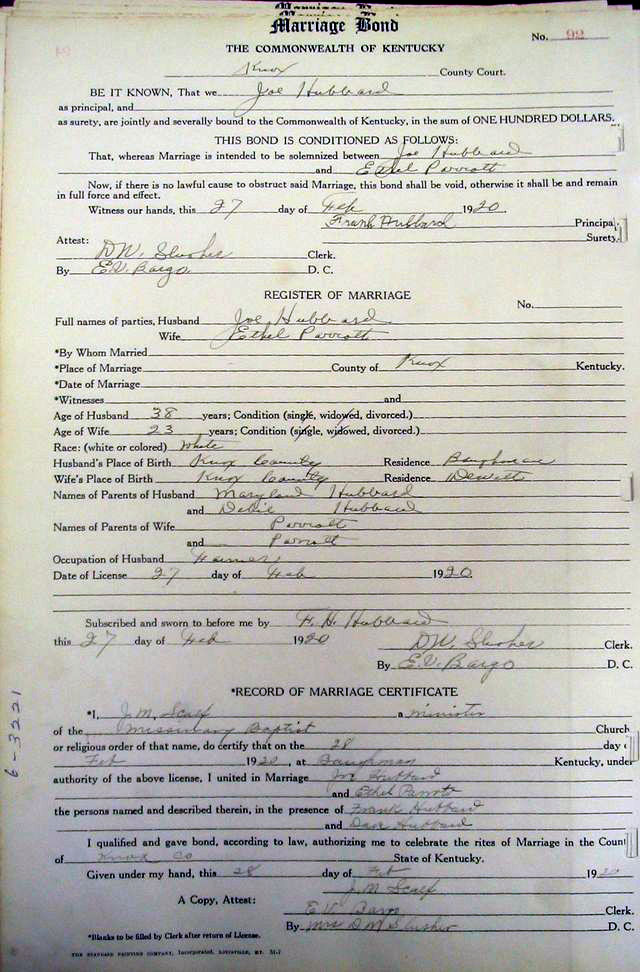 Marriage Bond
THE COMMONWEALTH OF KENTUCKY
No. 92
Knox County Court.
BE IT KNOWN, That we Joe Hubbard
as principal, and
as surety, are jointly and severally bound to the Commonwealth of Kentucky, in the sum of ONE HUNDRED DOLLARS.
THIS BOND IS CONDITIONED AS FOLLOWS:
That, whereas Marriage is intended to be solemnized between Joe Hubbard
and Ethel Parrott
Now, if there is no lawful cause to obstruct said Marriage, this bond shall be void, otherwise it shall be and remain
in full force and effect.
Witness our hands, this 27 day of Feb 1920.
Frank Hubbard Principal
Surety.
Attest: D.W. Slusher Clerk.
By E.V. Bargo D. C.
REGISTER OF MARRIAGE
No.
Full names of parties, Husband Joe Hubbard
Wife Ethel Parrott
*By Whom Married
*Place of Marriage County of Knox Kentucky.
*Date of Marriage
*Witnesses and
Age of Husband 38 years; Condition (single, widowed, divorced.)
Age of Wife 23 years; Condition (single, widowed, divorced.)
Race: (white or colored) White
Husband's Place of Birth Knox County Residence Baughman
Wife's Place of Birth Knox County Residence Dewitt
Names of Parents of Husband Maryland Hubbard
and Hubbard
Names of Parents of Wife Parrott
and Parrott
Occupation of Husband Farmer
Date of License 27 day of Feb 1920.
Subscribed and sworn to before me by F. H. Hubbard
this 27 day of Feb 1920 D.W. Slusher Clerk.
By E.V. Bargo D. C.
*RECORD OF MARRIAGE CERTIFICATE
*I, J. M. Scalf a minister
of the Missionary Baptist Church
or religious order of that name, do certify that on the 28 day
Feb 1920, at Baughman Kentucky, under
authority of the above license, I united in Marriage Joe Hubbard
and Ethel Parrott
the persons named and described therein, in the presence of Frank Hubbard
and Hubbard
I qualified and gave bond, according to law, authorizing me to celebrate the rites of Marriage in the Count
of Knox Co State of Kentucky.
Given under my hand, this 28 day of Feb 1920
J. M. Scalf
A Copy, Attest:
E V Bargo Clerk.
By Mrs D M Slusher D. C.
*Blanks to be filled by Clerk after return of License.
THE STANDARD PRINTING COMPANY, Incorporated, LOUISVILLE, KY.
6-3221